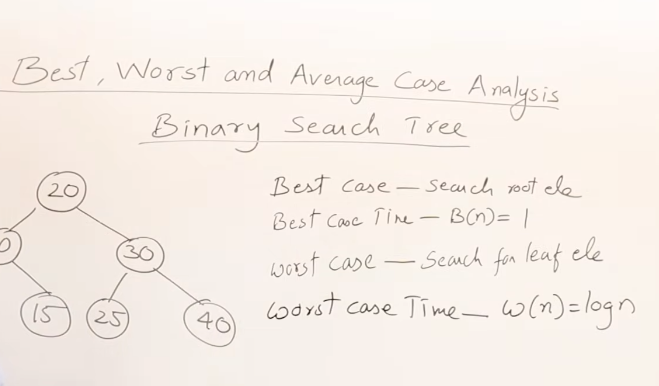 Best, Worst and Average Case Analysis
Binary Search Tree
20
30
15
25
40
Best case — Search root ele
Best Case Time — B(n)= 1
worst case — Search for leaf ele
worst case Time — w(n)=logn